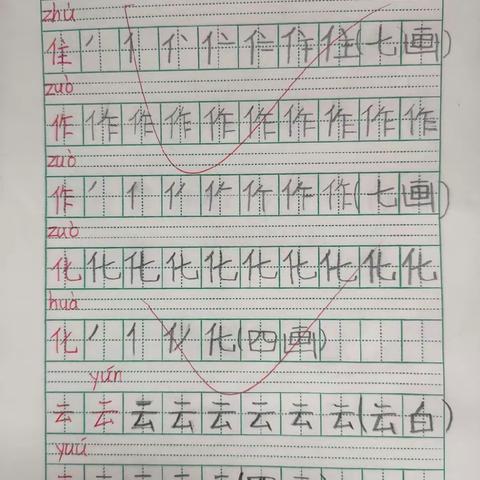 zhù
住 丿 亻 亻 仁 仹 住 住(七画)
zuò
作 作 作 作 作 作 作 作 作 作
zuò
作 丿 亻 亻 仁 作 作 作(七画)
zuò
化 化 化 化 化 化 化 化 化 化
huà
化 丿 亻 化 化(四画)
yún
云 云 云 云 云 云 云 云(云白)
yuú